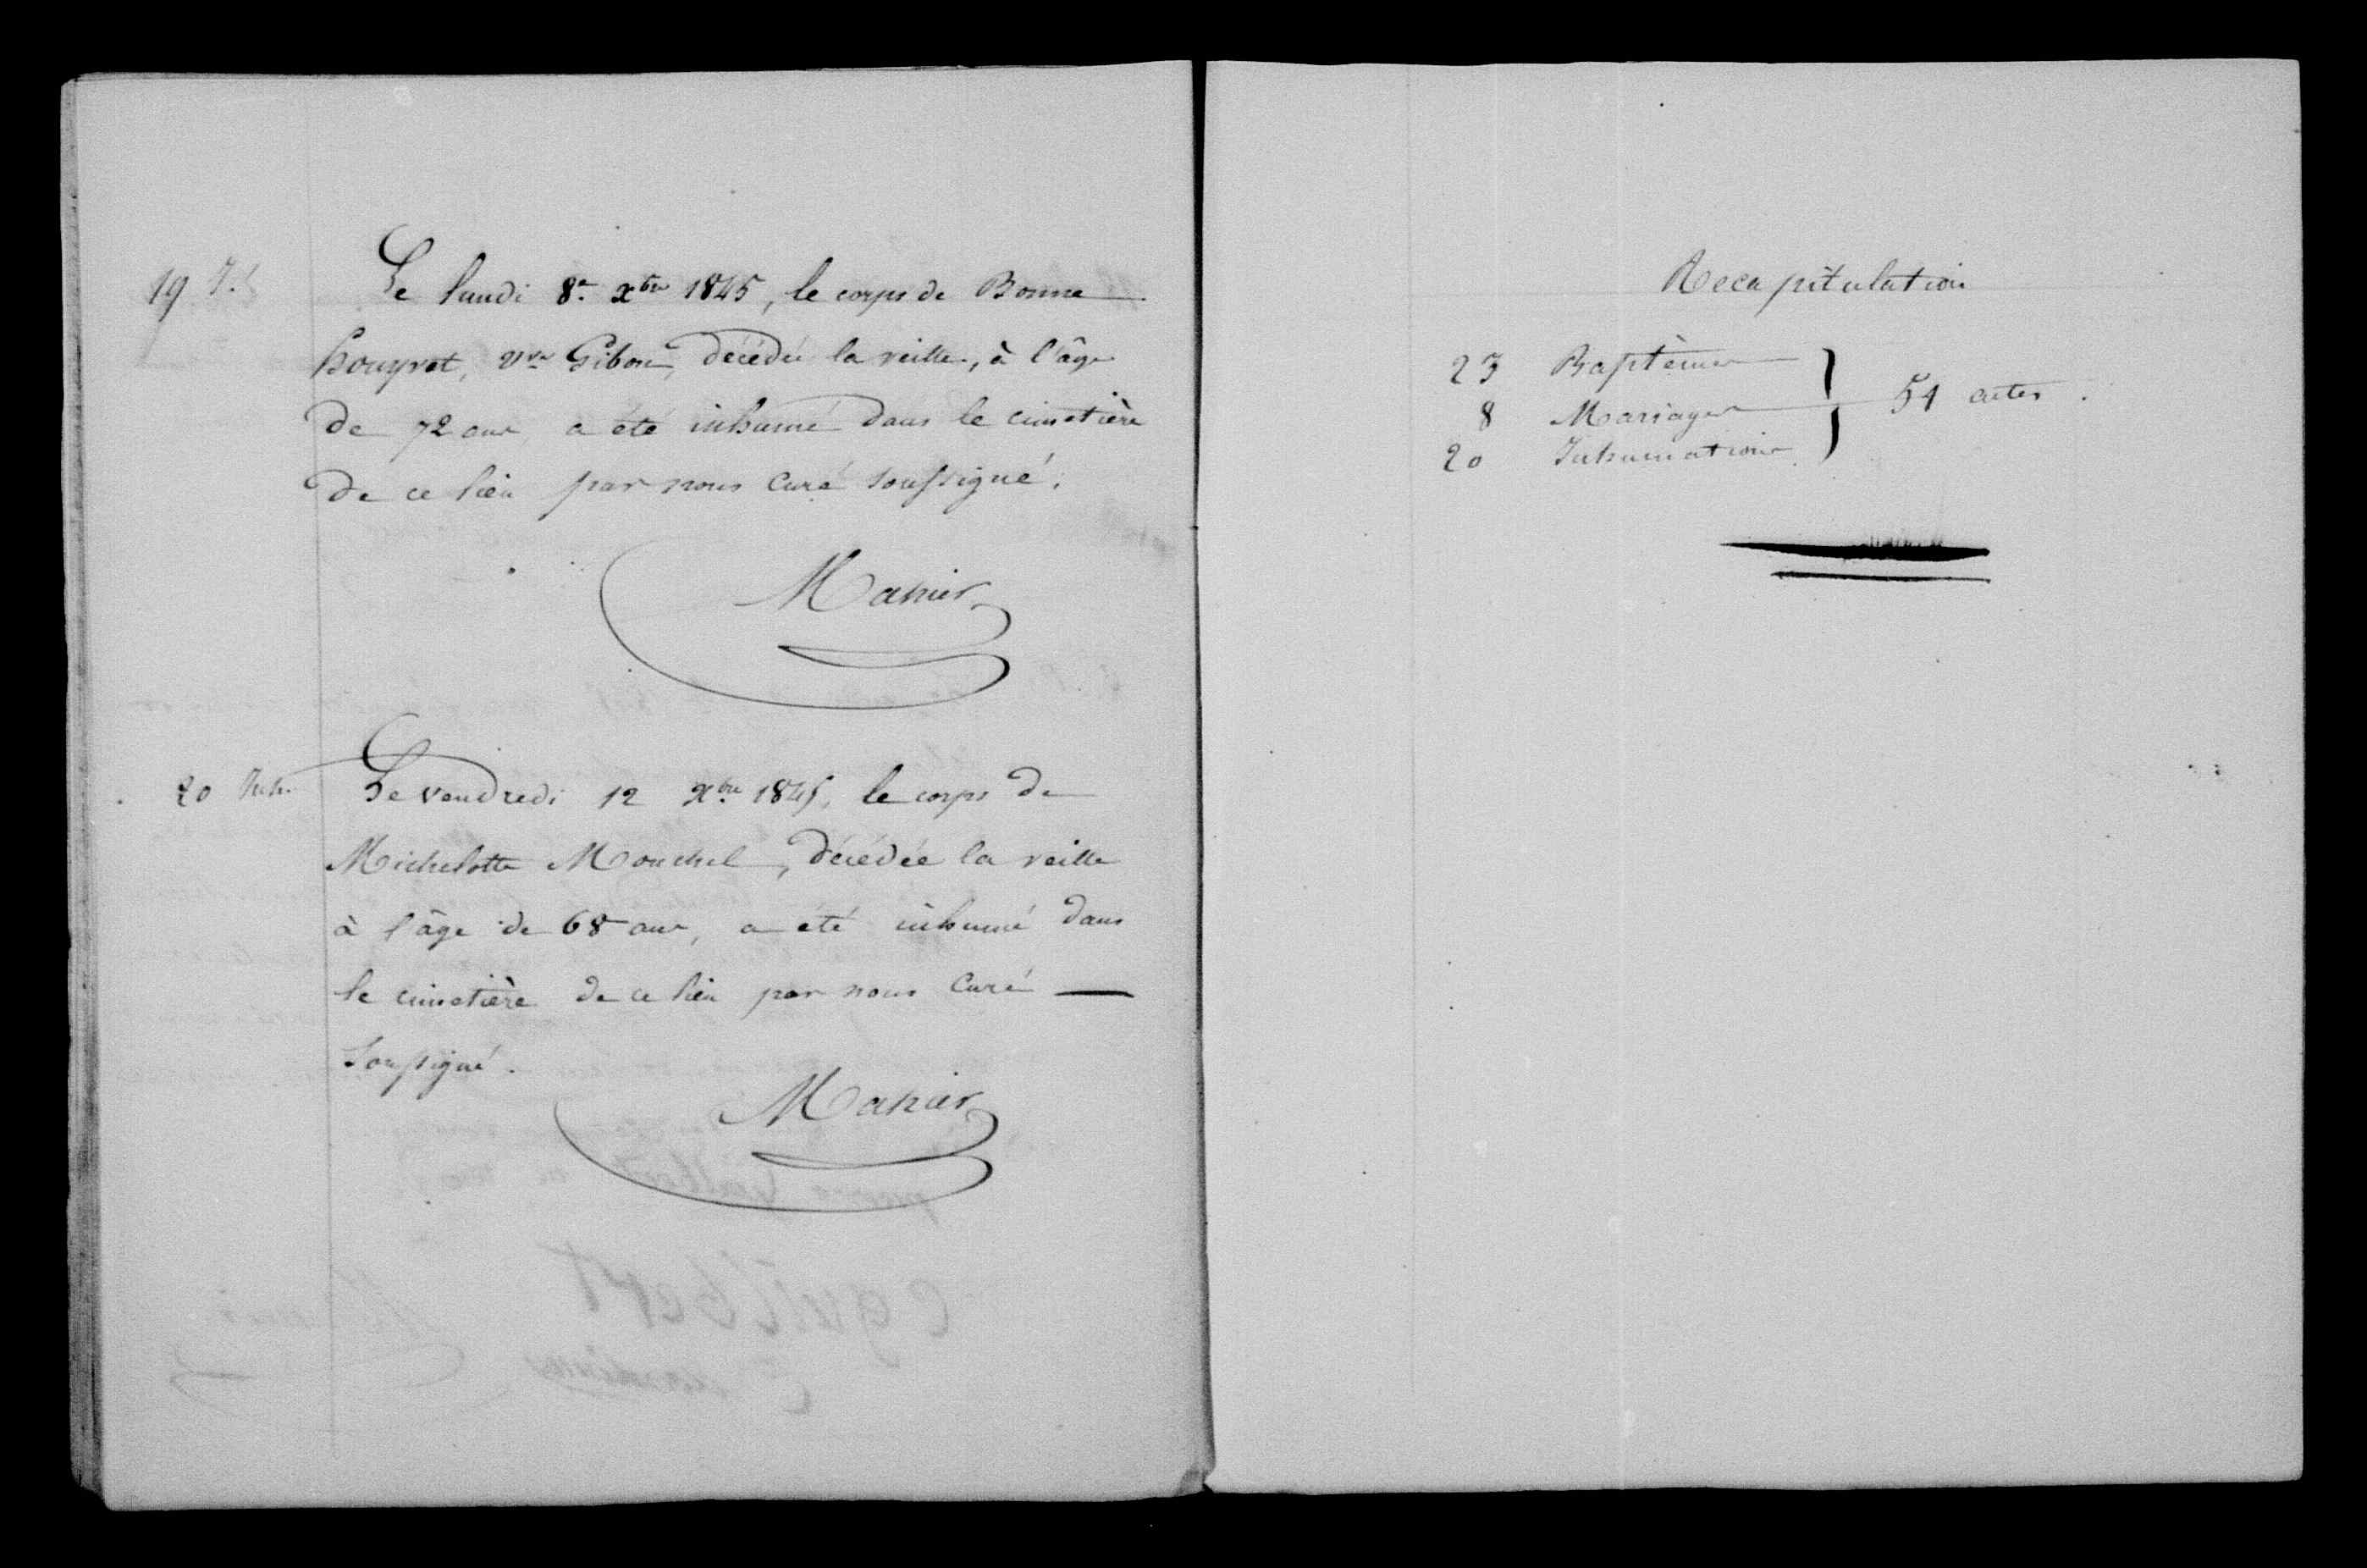 19 I.
Le lundi 8e xbre 1845, le corps de Bonne
houyvet, Vve Gibon, décédée la veille, à l'âge
de 72 ans a été inhumé dans le cimetière
de ce lieu par nous Curé soussigné.
Mahier
20 Inh.
Le vendredi 12 Xbre 1845, le corps de
Michelotte Mouchel, décédée la veille
à l'âge de 68 ans, a été inhumé dans
le cimetière de ce lieu par nous Curé —
Soussigné.
Mahier
Recapitulation
23 Baptêmes
8 Mariages } 51 actes.
20 Inhumations